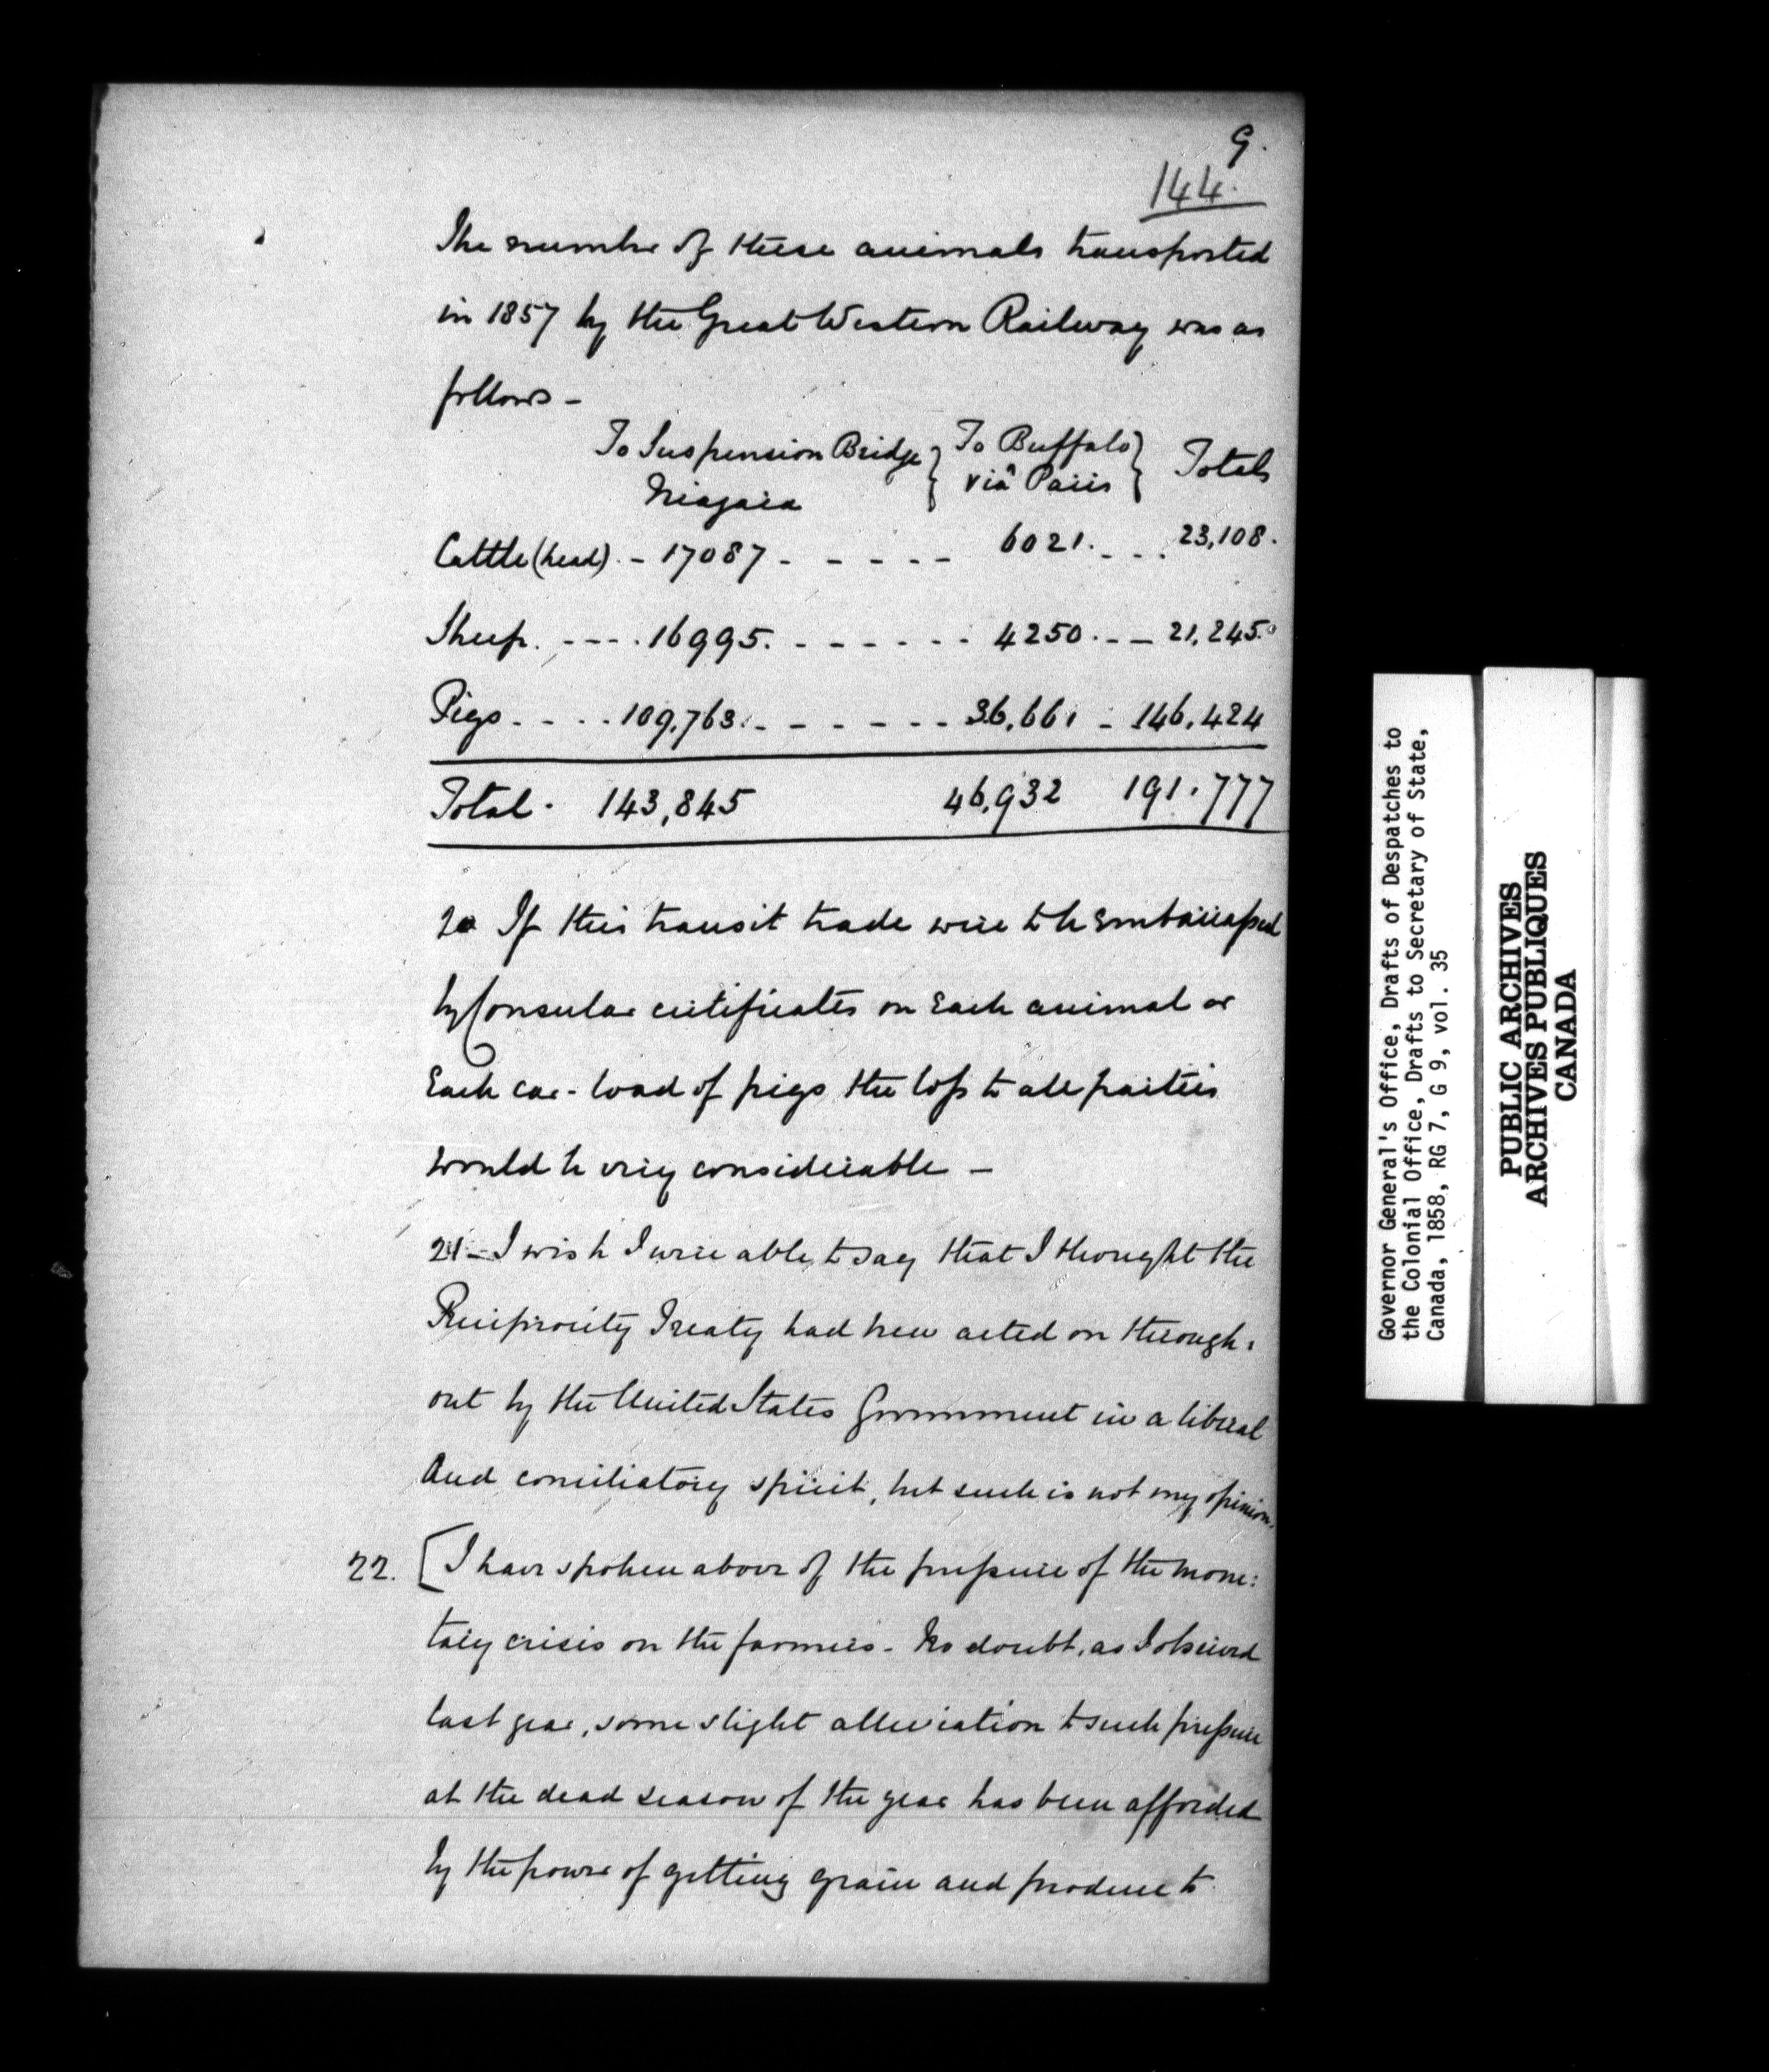 9.
144.
The number of these animals transported
in 1857 by the Great Western Railway was as
follows -
To Suspension Bridge } To Buffalo } Totals
Niagara } viâ Paris }
Cattle (head). - 17087 - - - - - 6021. - - . 23,108.
Sheep. - - - . 16995. - - - - - - 4250. - - 21,245.
Pigs. - - . . 109,763. - - - - - - 36,661 - 146,424
Total . 143,845 46,932 191.777
20 If this transit trade were to be Embarrassed
by Consular certificates on Each animal or
Each car-load of pigs the loss to all parties
would be very considerable -
21 - I wish I were able to say that I thought the
Reciprocity Treaty had been acted on through-
out by the United States Government in a liberal
And conciliatory spirit, but such is not my opinion.
22. [I have spoken above of the pressure of the mone:
tary crisis on the farmers - No doubt, as I observed
last year, some slight alleviation to such pressure
at the dead season of the year has been afforded
by the power of getting grain and produce to
Governor General's Office, Drafts of Despatches to
the Colonial Office, Drafts to Secretary of State,
Canada, 1858, RG 7, G 9, vol. 35
PUBLIC ARCHIVES
ARCHIVES PUBLIQUES
CANADA